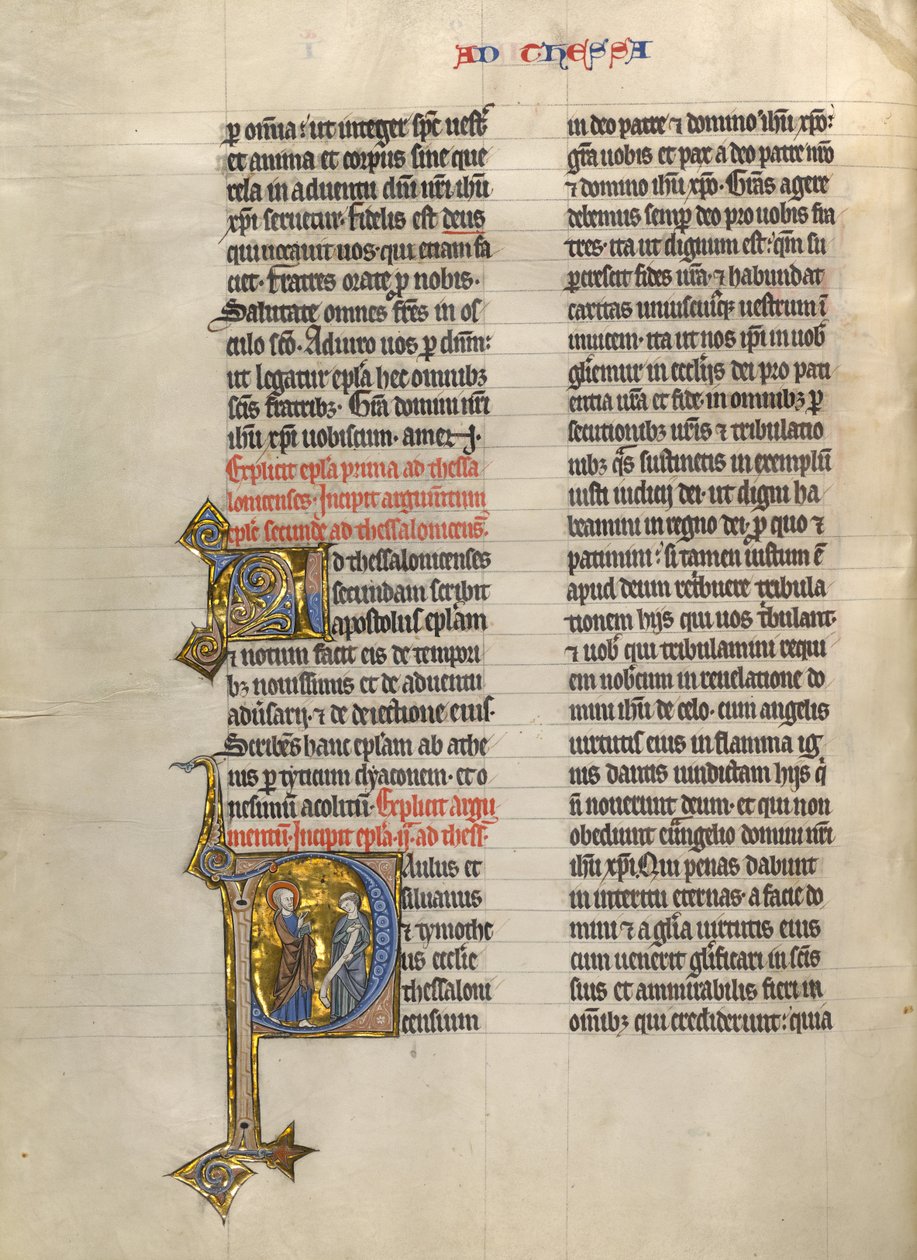 AD THESSA
ꝑ om̅ia: ut integer sp̅c uest̅
et anima et corpus sine que
rela in aduentu dn̅i nr̅i ih̅u
xp̅i seruetur. Fidelis est deus
qui uocauit uos. qui etiam fa
ciet. Fratres orate ꝓ nobis.
Salutate omnes fr̅es in os
culo sc̅o. Adiuro uos ꝑ dn̅m:
ut legatur ep̅la hec omnibꝫ
sc̅is fratribꝫ. Gr̅a domini nr̅i
ih̅u xp̅i uobiscum. amen.
Explicit ep̅la prima ad thessa
lonicenses. Incipit argum̅tum
ep̅le secunde ad thessalonicens̅.
Ad thessalonicenses
secundam scribit
apostolus ep̅lam
⁊ notum facit eis de tempori
bꝫ nouissimis et de aduentu
aduˀsarij. ⁊ de deiectione eius.
Scribe̅s hanc ep̅lam ab athe
nis ꝑ tyticum dyaconem. et o
nesimu̅ acolitu̅. Explicit argu
mentu̅. Incipit ep̅la .ij. ad thess̅
Paulus et
siluanus
⁊ tymothe
us eccl̅ie
thessaloni
censium
in deo patre ⁊ domino ih̅u xp̅o:
gr̅a uobis et pax a deo patre nr̅o
⁊ domino ih̅u xp̅o. Gr̅as agere
debemus semꝑ deo pro uobis fra
tres. ita ut dignum est: qm̅ su
ꝑcrescit fides ur̅a. ⁊ habundat
caritas uniuscuiꝰqꝫ uestrum i̅
inuicem. ita ut nos ip̅i in uob̅
gl̅iemur in eccl̅ijs dei pro pati
entia ur̅a et fide. in omnibꝫ ꝑ
secutionibꝫ ur̅is ⁊ tribulatio
nibꝫ qͣs sustinetis in exemplu̅
iusti iudicij dei. ut digni ha
beamini in regno dei. ꝓ quo ⁊
patimini: si tamen iustum e̅
apud deum retͥbuere tribula
tionem hijs qui uos tͥbulant.
⁊ uob̅ qui tribulamini requi
em nob̅cum in reuelatione do
mini ih̅u de celo. cum angelis
uirtutis eius in flamma ig
nis dantis uindictam hijs qͥ
n̅ nouerunt deum. et qui non
obediunt euͣngelio domini nr̅i
ih̅u xp̅i. Qui penas dabunt
in interitu eternas. a facie do
mini ⁊ a gl̅ia uirtutis eius
cum uenerit gl̅ificari in sc̅is
suis et ammirabilis fieri in
om̅ibꝫ qui crediderunt: quia